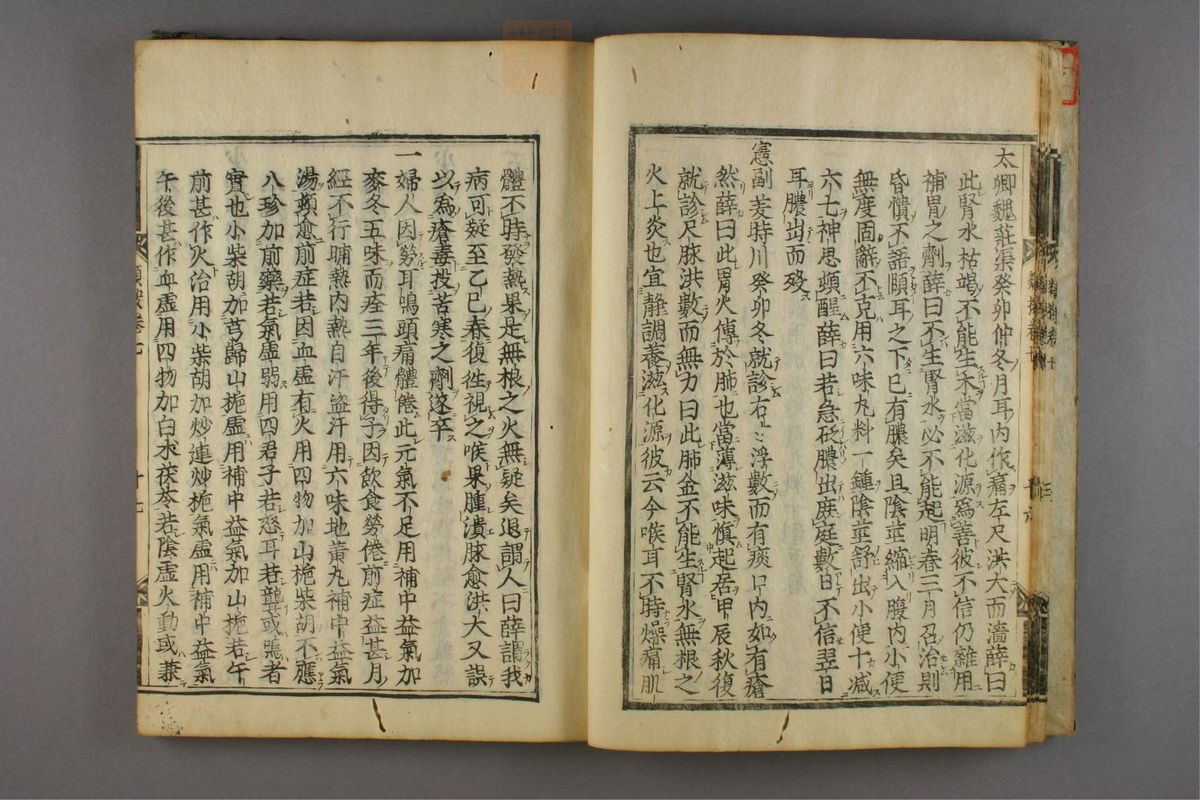 太卿魏莊渠癸卯仲冬月耳内作痛左尺洪大而濇薛曰
此腎水枯竭不能生木當滋化源爲善彼不信仍雜用
補胃之劑薛曰不生腎水必不能起明春三月召治則
昏憒不語頤耳之下已有膿矣且陰莖縮入腹内小便
無度固辭不克用六味丸料一鍾陰莖舒出小便十減
六七神思頓醒薛曰若急砭膿出庶延數日不信翌日
耳膿出而歿
憲副姜時川癸卯冬就診右寸浮數而有痰口内如有瘡
然薛曰此胃火傳於肺也當薄滋味慎起居甲辰秋復
就診尺脉洪數而無力曰此肺金不能生腎水無根之
火上炎也宜靜調養滋化源彼云今喉耳不時燥痛肌
體不時發熱果是無根之火無疑矣退謂人曰薛謂我
病可疑至乙巳春復徃視之喉果腫潰脉愈洪大又誤
以爲瘡毒投苦寒之劑遂卒
一婦人因勞耳鳴頭痛體倦此元氣不足用補中益氣加
麥冬五味而痊三年後得子因飲食勞倦前症益甚月
經不行晡熱内熱自汗盗汗用六味地黄丸補中益氣
湯頓愈前症若因血虚有火用四物加山梔柴胡不應
八珍加前藥若氣虚弱用四君子若怒耳若聾或鳴者
實也小柴胡加芎歸山梔虚用補中益氣加山梔若午
前甚作火治用小柴胡加炒連炒梔氣虚用補中益氣
午後甚作血虚用四物加白朮茯苓若陰虚火動或兼